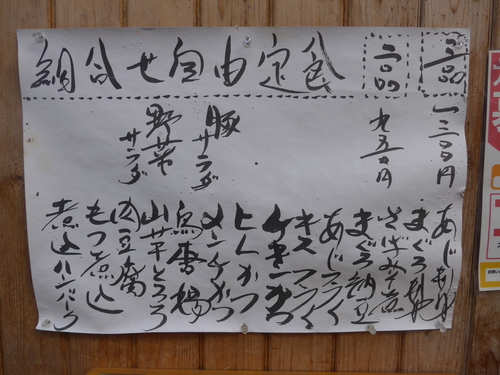 組合せ自由定食
二品
九五〇円
三品
一二〇〇円
あじたたき
まぐろ刺
さばみそ煮
まぐろ納豆
あじフライ
キスフライ
チキンかつ
ヒレかつ
メンチかつ
鳥唐揚
山芋とろろ
肉豆腐
もつ煮込
煮込ハンバーグ
豚サラダ
野菜サラダ